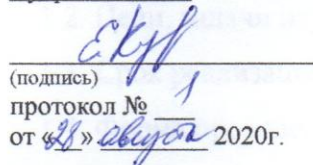 (подпись)
протокол № 1
от «28» августа 2020г.